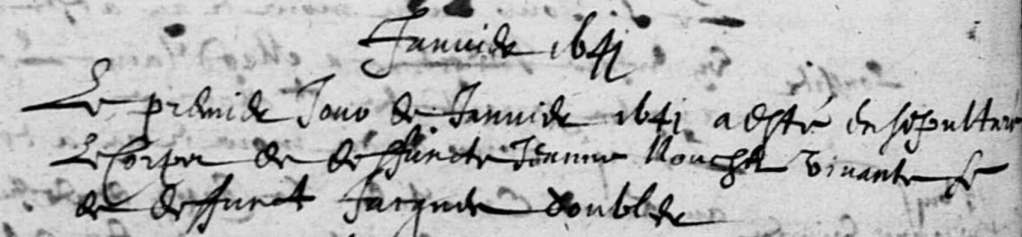 Januier 1641
Le premier Jour de Januier 1641 a esté ensepulture
Le Corps de deffuncte Jeanne vivante fe
de deffunct Jacques doublet